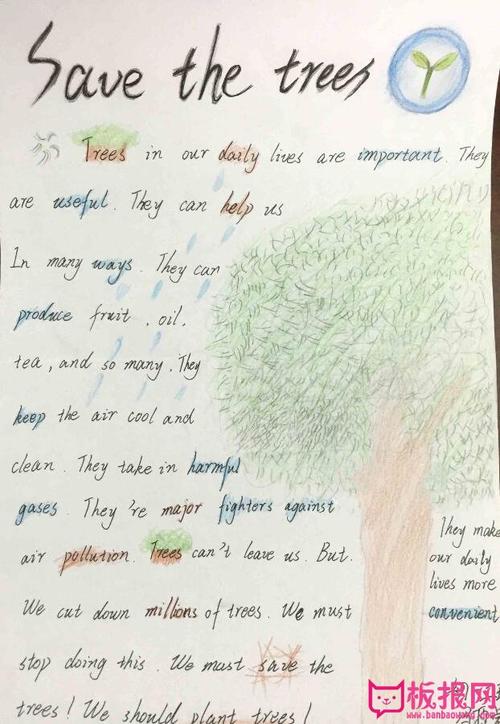 Save the trees
Trees in our daily lives are important. They
are useful. They can help us
In many ways. They can
produce fruit, oil,
tea, and so many. They
keep the air cool and
clean. They take in harmful
gases. They're major fighters against
air pollution. Trees can't leave us. But.
We cut down millions of trees. We must
stop doing this. We must save the
trees! We should plant trees!
They make
our daily
lives more
convenient
板报网
www.banbaowang.com